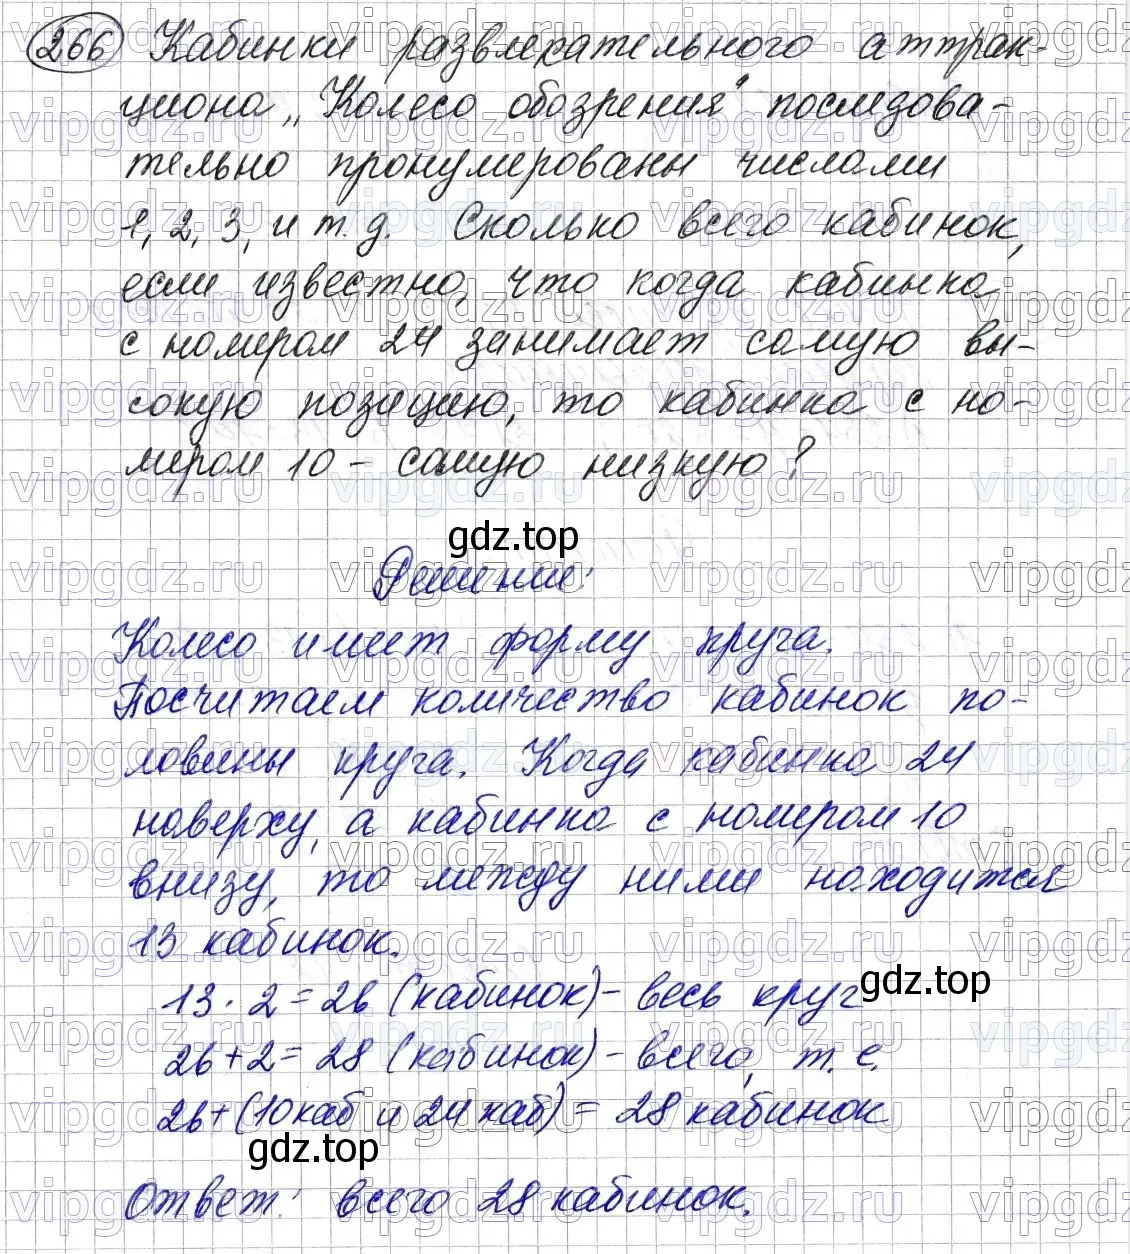 266 Кабинки развлекательного аттрак-
циона „Колесо обозрения" последова-
тельно пронумерованы числами
1, 2, 3, и т. д. Сколько всего кабинок,
если известно, что когда кабинка
с номером 24 занимает самую вы-
сокую позицию, то кабинка с но-
мером 10 - самую низкую?
gdz.top
Решение:
Колесо имеет форму круга.
Посчитаем количество кабинок по-
ловины круга. Когда кабинка 24
наверху, а кабинка с номером 10
внизу, то между ними находится
13 кабинок.
13 · 2 = 26 (кабинок) - весь круг
gdz.top
26 + 2 = 28 (кабинок) - всего, т. е.
26 + (10 каб и 24 каб) = 28 кабинок
gdz.top
Ответ: всего 28 кабинок.